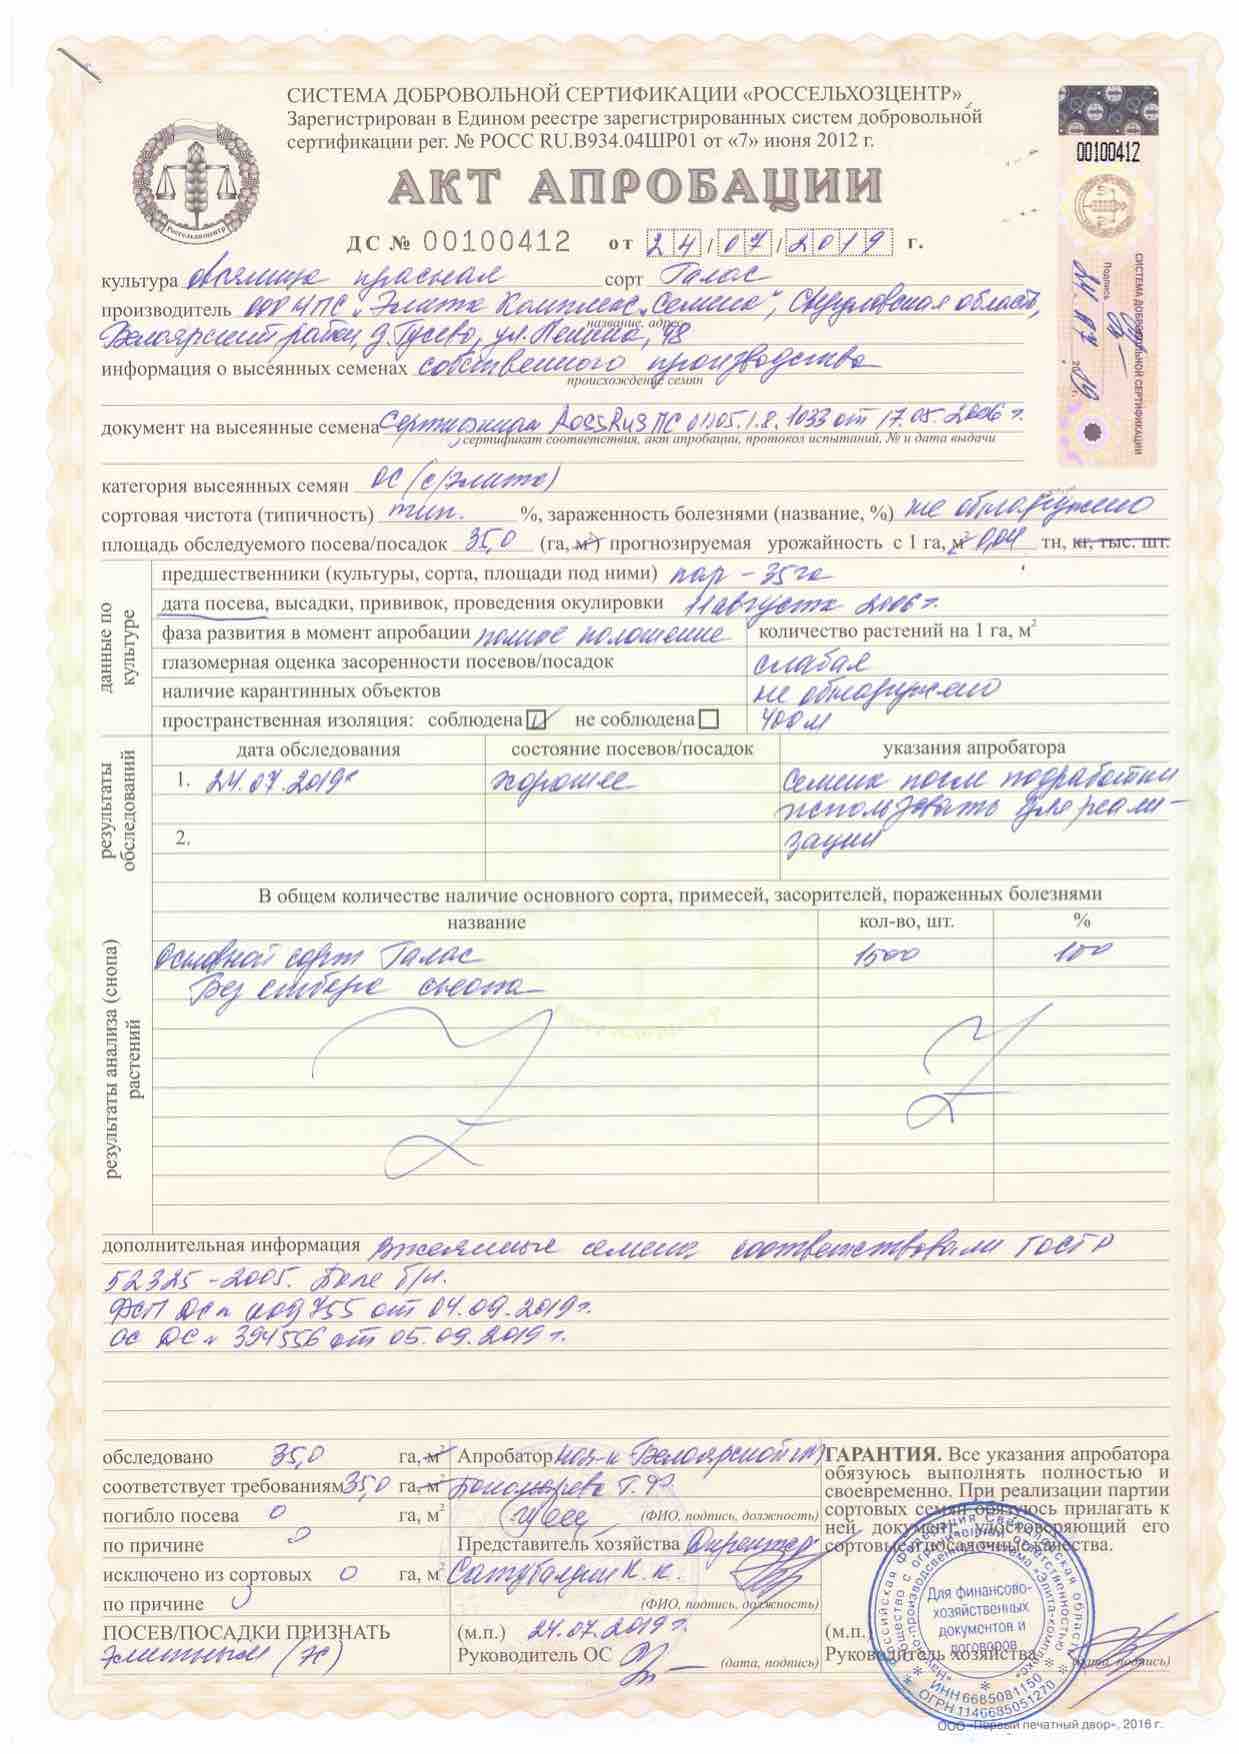 СИСТЕМА ДОБРОВОЛЬНОЙ СЕРТИФИКАЦИИ «РОССЕЛЬХОЗЦЕНТР»
Зарегистрирован в Едином реестре зарегистрированных систем добровольной
сертификации рег. № РОСС RU.В934.04ШР01 от «7» июня 2012 г.
АКТ АПРОБАЦИИ
Россельхозцентр
00100412
СИСТЕМА ДОБРОВОЛЬНОЙ СЕРТИФИКАЦИИ
Подпись
24 07 2019 г.
ДС № 00100412 от 24/07/2019 г.
культура овсяница красная сорт Галас
производитель ООО НПС "Элита-Комплекс "Семена", Свердловская область,
название, адрес
Белоярский район, д. Гусево, ул. Ленина, 48
информация о высеянных семенах собственного производства
происхождение семян
документ на высеянные семена Сертификат РОСС RU ПС 01.05.1.8.1033 от 17.05.2006 г.
сертификат соответствия, акт апробации, протокол испытаний, № и дата выдачи
категория высеянных семян ОС (с/элита)
сортовая чистота (типичность) тип. %, зараженность болезнями (название, %) не обнаружено
площадь обследуемого посева/посадок 35,0 (га, м²) прогнозируемая урожайность с 1 га, м² 0,04 тн, кг, тыс. шт.
данные по культуре
предшественники (культуры, сорта, площади под ними) пар - 35 га
дата посева, высадки, прививок, проведения окулировки 11 августа 2006 г.
фаза развития в момент апробации полное количество растений на 1 га, м²
глазомерная оценка засоренности посевов/посадок слабая
наличие карантинных объектов не обнаружено
пространственная изоляция: соблюдена не соблюдена 400 м
результаты обследований
дата обследования состояние посевов/посадок указания апробатора
1. 24.07.2019г хорошее Семена после подработки
использовать для реали-
2. зации
результаты анализа (снопа) растений
В общем количестве наличие основного сорта, примесей, засорителей, пораженных болезнями
название кол-во, шт. %
Основной сорт Галас 1500 100
Без отбора снопа
дополнительная информация Высеянные семена соответствовали ГОСТ Р
52325-2005. Поле б/н.
ДС 755 от 04.09.2019г.
ОС ДС № 394556 от 05.09.2019 г.
обследовано 35,0 га, м²
соответствует требованиям 35,0 га, м²
погибло посева 0 га, м²
по причине
исключено из сортовых 0 га, м²
по причине
ПОСЕВ/ПОСАДКИ ПРИЗНАТЬ
Элитным (ЭС)
Апробатор нач-к Белоярского
Пономарева Т.Ф.
(ФИО, подпись, должность)
Представитель хозяйства Директор
К. К.
(ФИО, подпись, должность)
(м.п.) 24.07.2019 г.
Руководитель ОС
(дата, подпись)
ГАРАНТИЯ. Все указания апробатора
обязуюсь выполнять полностью и
своевременно. При реализации партии
сортовых семян обязуюсь прилагать к
ней документ, удостоверяющий его
сортовые и посадочные качества.
(м.п.)
Руководитель хозяйства
(дата, подпись)
Для финансово-
хозяйственных
документов и
договоров
ИНН 6685081150
ОГРН 1146685051270
ООО «Первый печатный двор», 2016 г.